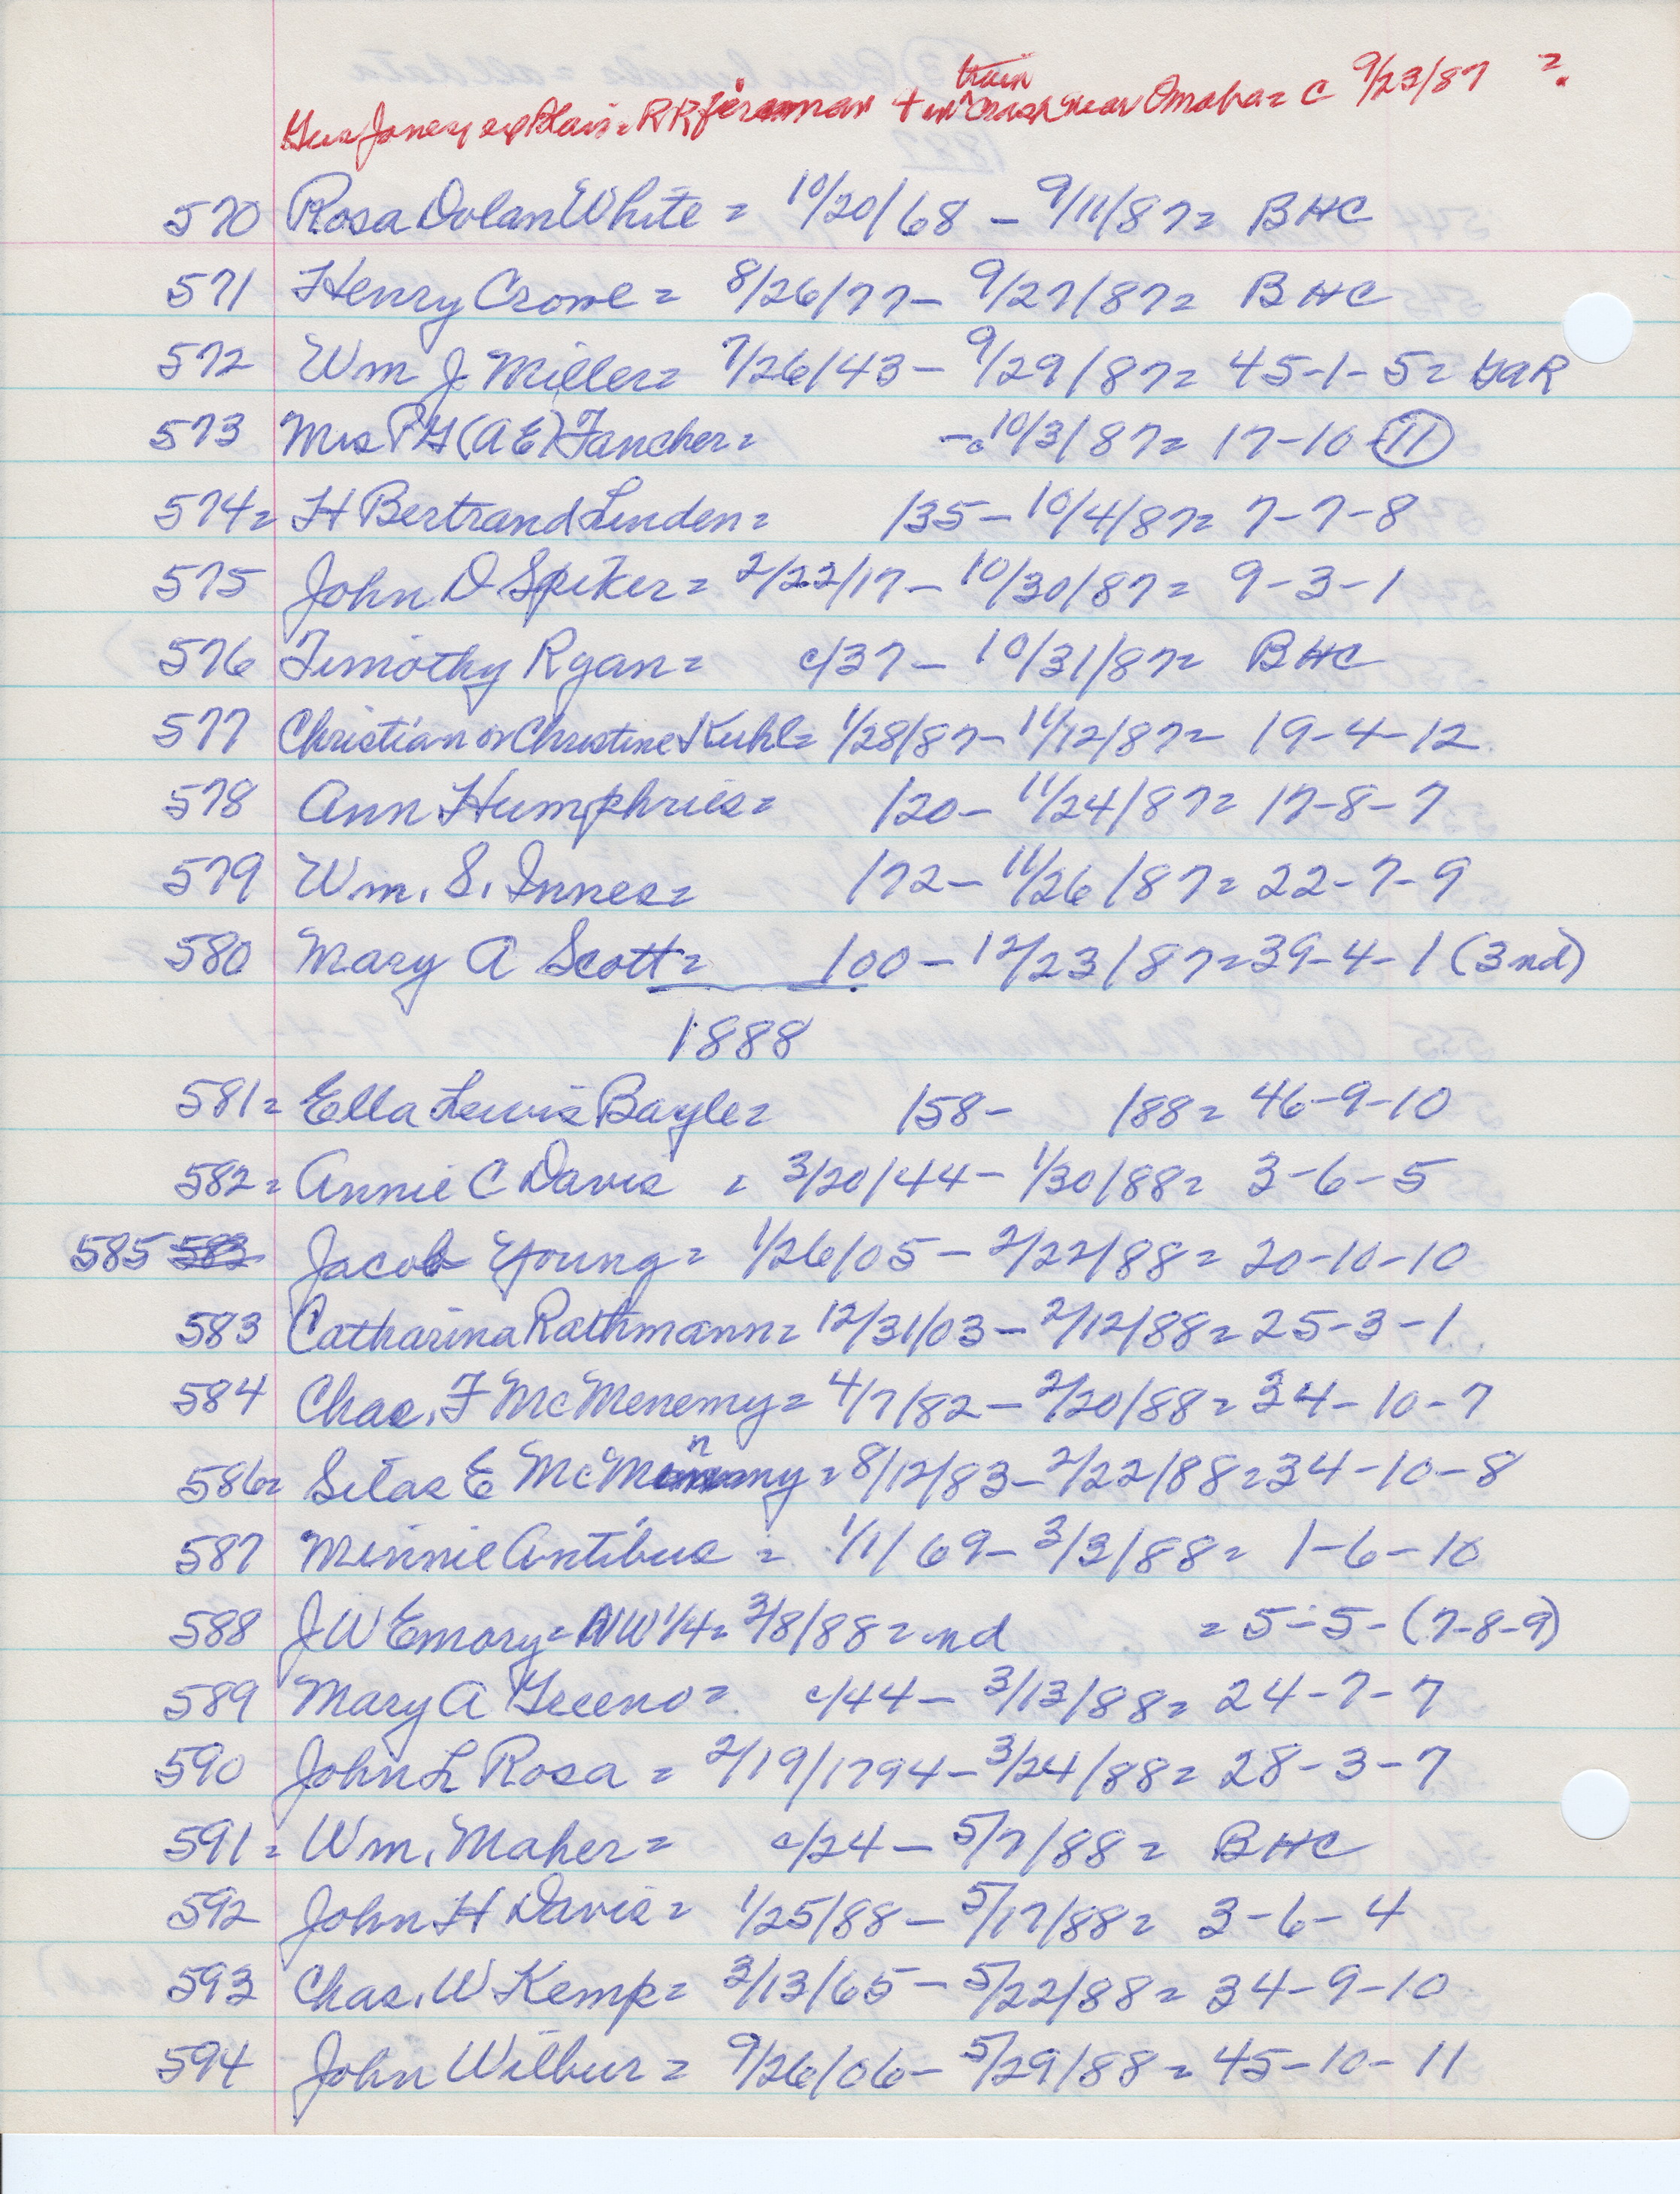 Gus Jones ex Blair = RR fireman + in train crash near Omaha = c 9/23/87 ?
570 Rosa Dolan White = 10/20/68 - 9/11/87 = BHC
571 Henry Crowe = 8/26/77 - 9/27/87 = BHC
572 Wm J. Miller = 7/26/43 - 9/29/87 = 45-1-5 = GAR
573 Mrs P G (A E) Fancher = - c 10/3/87 = 17-10-11
574 = H Bertrand Linden = /35 - 10/4/87 = 7-7-8
575 John D Spiker = 2/22/17 - 10/30/87 = 9-3-1
576 Timothy Ryan = c/37 - 10/31/87 = BHC
577 Christian or Christine Kuhl = 1/28/87 - 11/12/87 = 19-4-12
578 Ann Humphries = /20 - 11/24/87 = 17-8-7
579 Wm. S. Innes = /72 - 11/26/87 = 22-7-9
580 Mary A Scott = /00 - 12/23/87 = 39-4-1 (3nd)
1888
581 = Ella Lewis Bayle = /58 - /88 = 46-9-10
582 = Annie C Davis = 3/20/44 - 1/30/88 = 3-6-5
585 583 Jacob Young = 1/26/05 - 2/22/88 = 20-10-10
583 Catharina Rathmann = 12/31/03 - 2/12/88 = 25-3-1
584 Chas. F McMenemy = 4/7/82 - 2/20/88 = 34-10-7
586 = Silas E McMenemy = 8/12/83 - 2/22/88 = 34-10-8
587 Minnie Antibus = 1/1/69 - 3/3/88 = 1-6-10
588 J W Emory = NW 1/4 = 3/8/88 = nd = 5-5-(7-8-9)
589 Mary A Greeno = c/44 - 3/13/88 = 24-7-7
590 John L Rosa = 2/19/1794 - 3/24/88 = 28-3-7
591 = Wm. Maher = c/24 - 5/7/88 = BHC
592 John H Davis = 1/25/88 - 5/17/88 = 3-6-4
593 Chas. W Kemp = 3/13/65 - 5/22/88 = 34-9-10
594 John Wilbur = 9/26/06 - 5/29/88 = 45-10-11